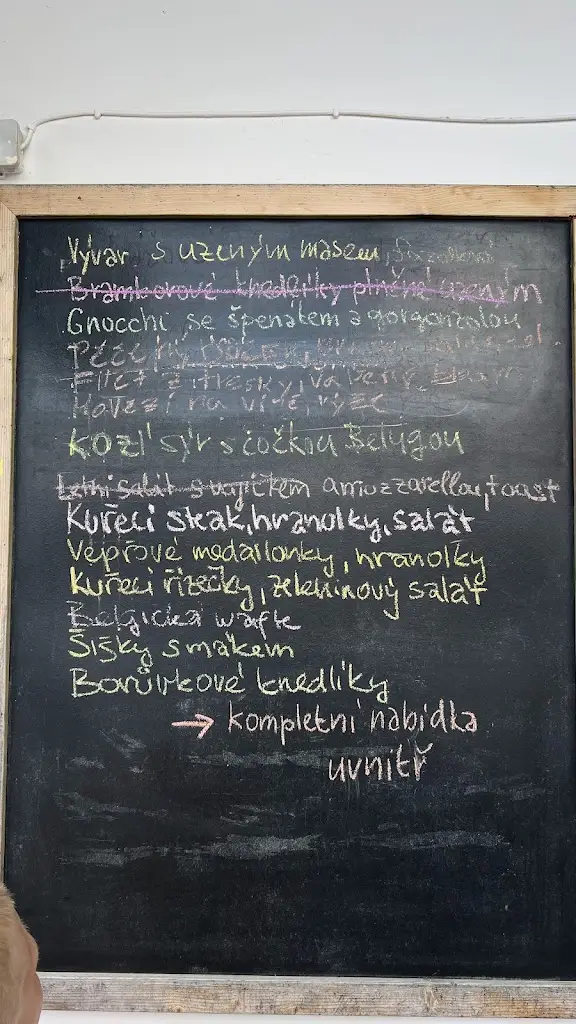 Vývar s uzeným masem,
Bramborové knedlíky plněné uzeným
Gnocchi se špenátem a gorgonzolou
Filet z tresky, vařené
Hovězí na víně, rýže
Kozí sýr s čočkou Belugou
Letní salát s vajíčkem a mozzarellou, toast
Kuřecí steak, hranolky, salát
Vepřové medailonky, hranolky
Kuřecí řízečky, zeleninový salát
Belgická wafle
Šišky s mákem
Borůvkové knedlíky
→ kompletní nabídka
uvnitř